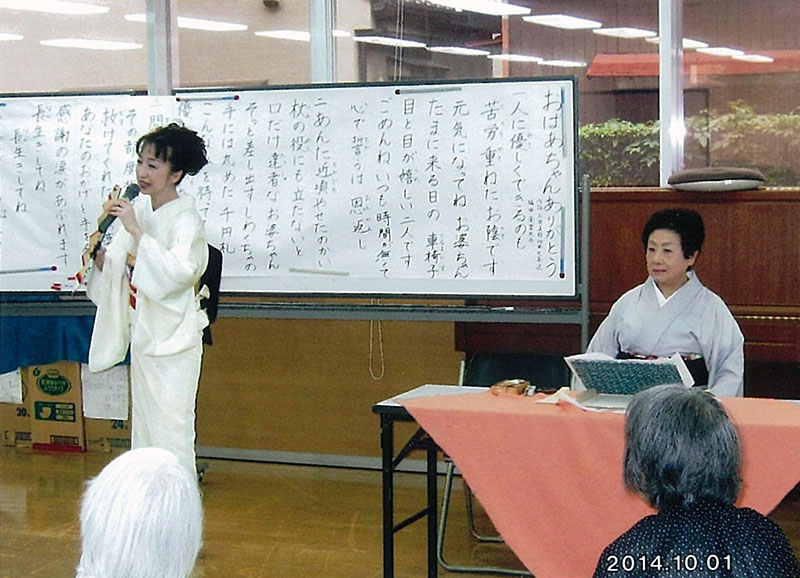 おばあちゃんありがとう
人に優しくできるのも
苦労重ねたお陰です
元気になってね お婆ちゃん
たまに来る日の 車椅子
目と目が嬉しい 二人です
ごめんね いつも時間が無くて
心で誓うは 恩返し
二 あんた近頃やせたのか
杖の役にも立たないと
口だけ達者な お婆ちゃん
そっと差し出す しわくちゃの
手には丸めた 千円札
こんなに
その
救けてくれた
あなたのおかげと 手を
感謝の涙があふれます
長生きしてね
長生きしてね
20
24
2014.10.01